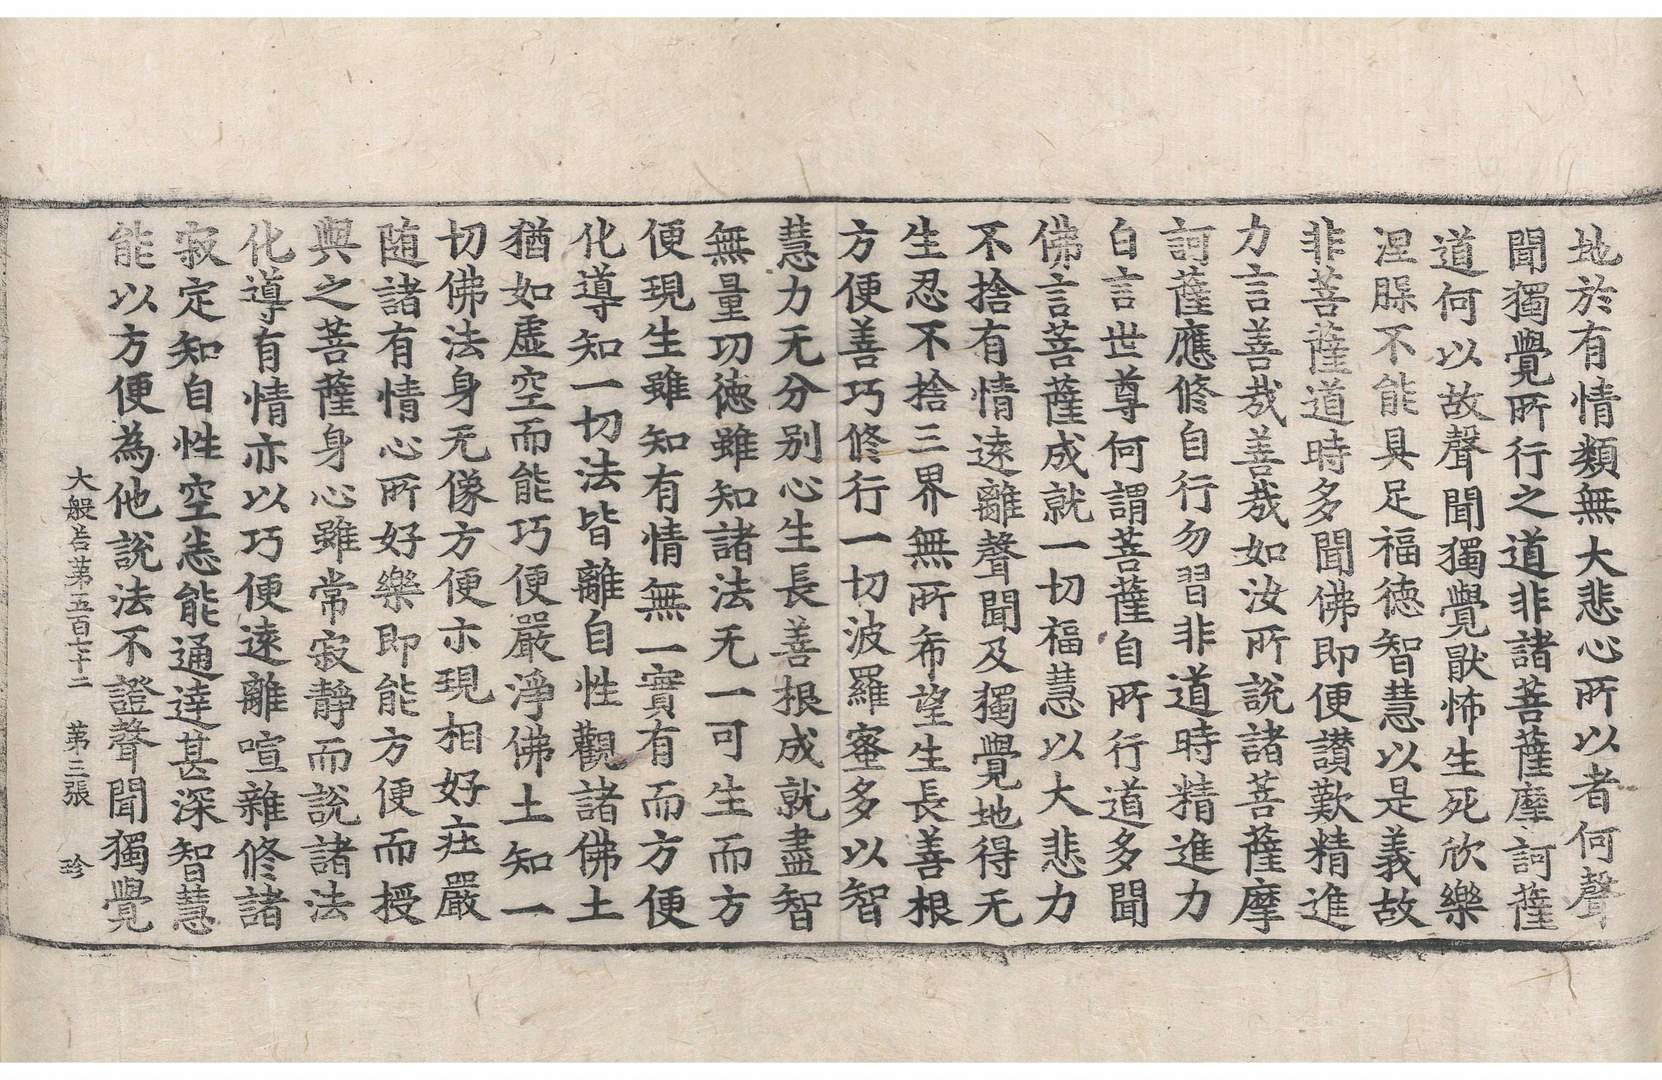 地於有情類無大悲心所以者何聲
聞獨覺所行之道非諸菩薩摩訶薩
道何以故聲聞獨覺猒怖生死欣樂
涅脲不能具足福德智慧以是義故
非菩薩道時多聞佛即便讃歎精進
力言善㢤善㢤如汝所說諸菩薩摩
訶薩應修自行勿習非道時精進力
白言世尊何謂菩薩自所行道多聞
佛言菩薩成就一切福慧以大悲力
不捨有情遠離聲聞及獨覺地得无
生忍不捨三界無所希望生長善根
方便善巧修行一切波羅蜜多以智
慧力无分別心生長善根成就盡智
無量功徳雖知諸法无一可生而方
便現生雖知有情無一實有而方便
化導知一切法皆離自性觀諸佛土
猶如虛空而能巧便嚴淨佛土知一
切佛法身无像方便亦現相好庄嚴
随諸有情心所好樂即能方便而授
與之菩薩身心雖常寂靜而說諸法
化導有情亦以巧便遠離喧雜修諸
寂定知自性空恙能通逹甚深智慧
能以方便為他說法不證聲聞獨覺
大般若第五百七十二　第三張　珍